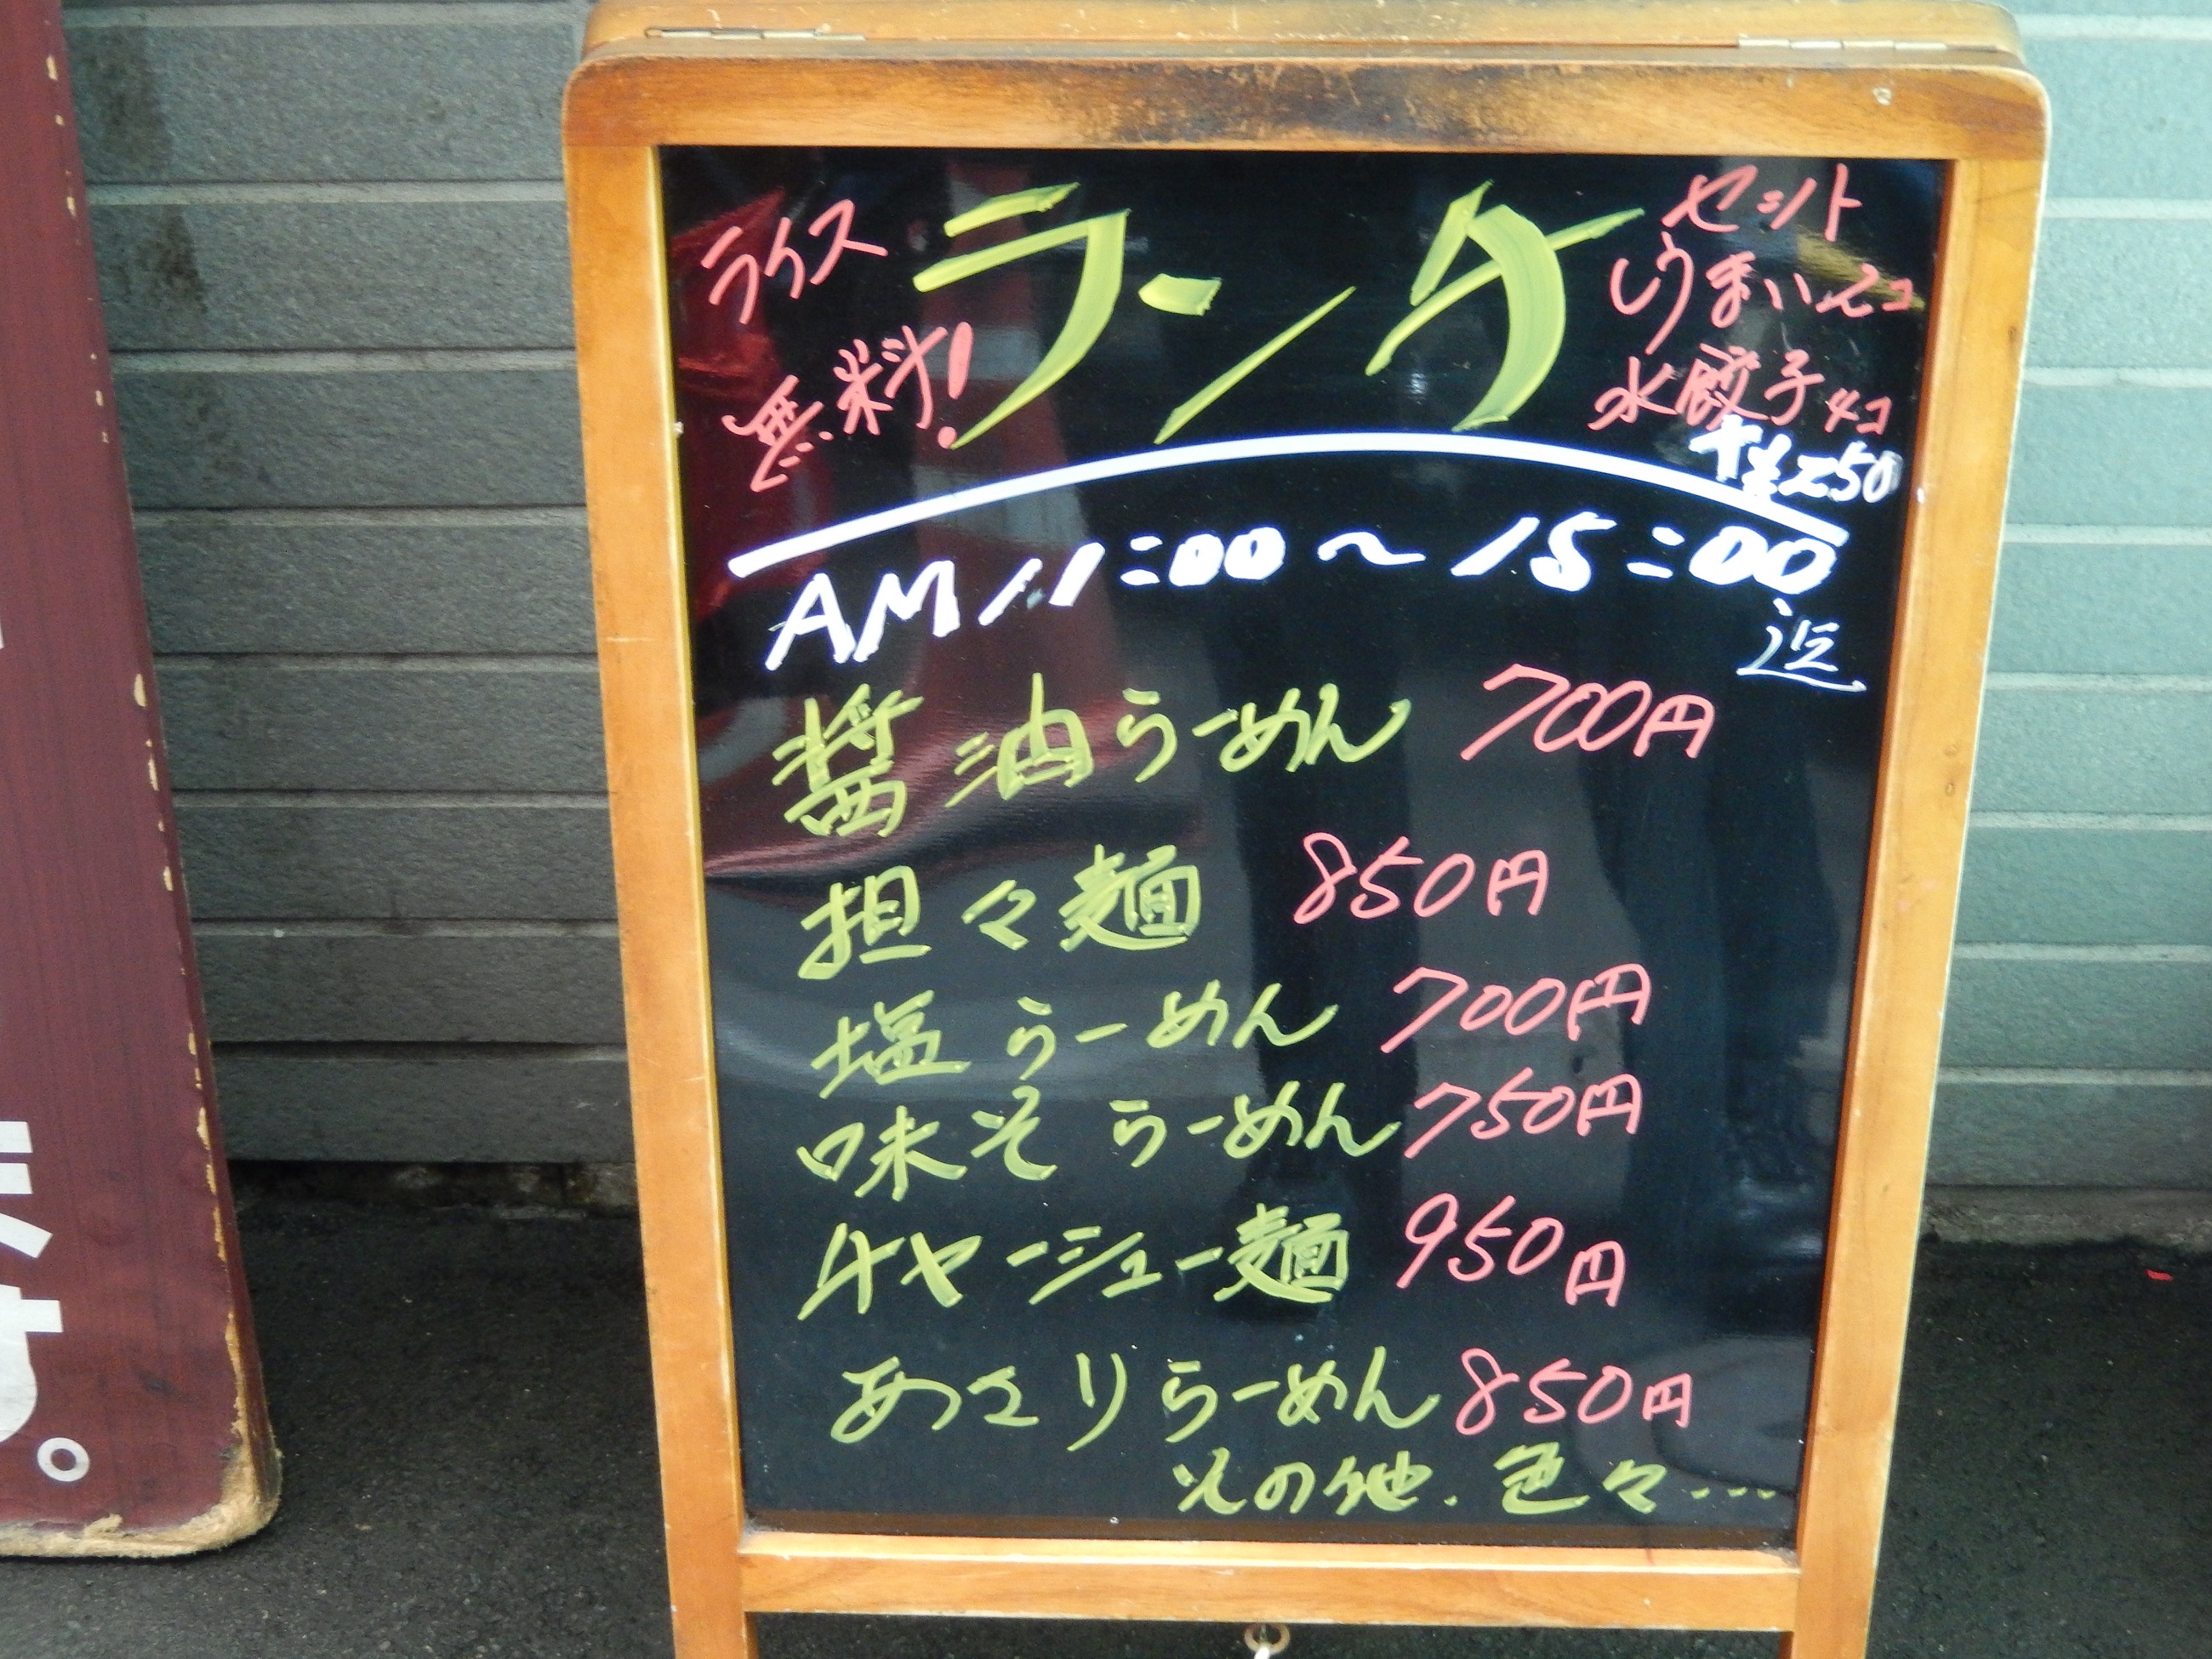 ライス
無料!
ランケ
セット
しうまい2コ
水餃子4コ
+¥250
AM11:00〜15:00
迄
醤油らーめん 700円
担々麺 850円
塩らーめん 700円
味そらーめん 750円
チャーシュー麺 950円
あさりらーめん 850円
その他.色々...